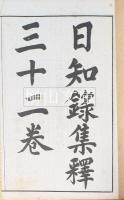 日知錄集釋
三十二卷